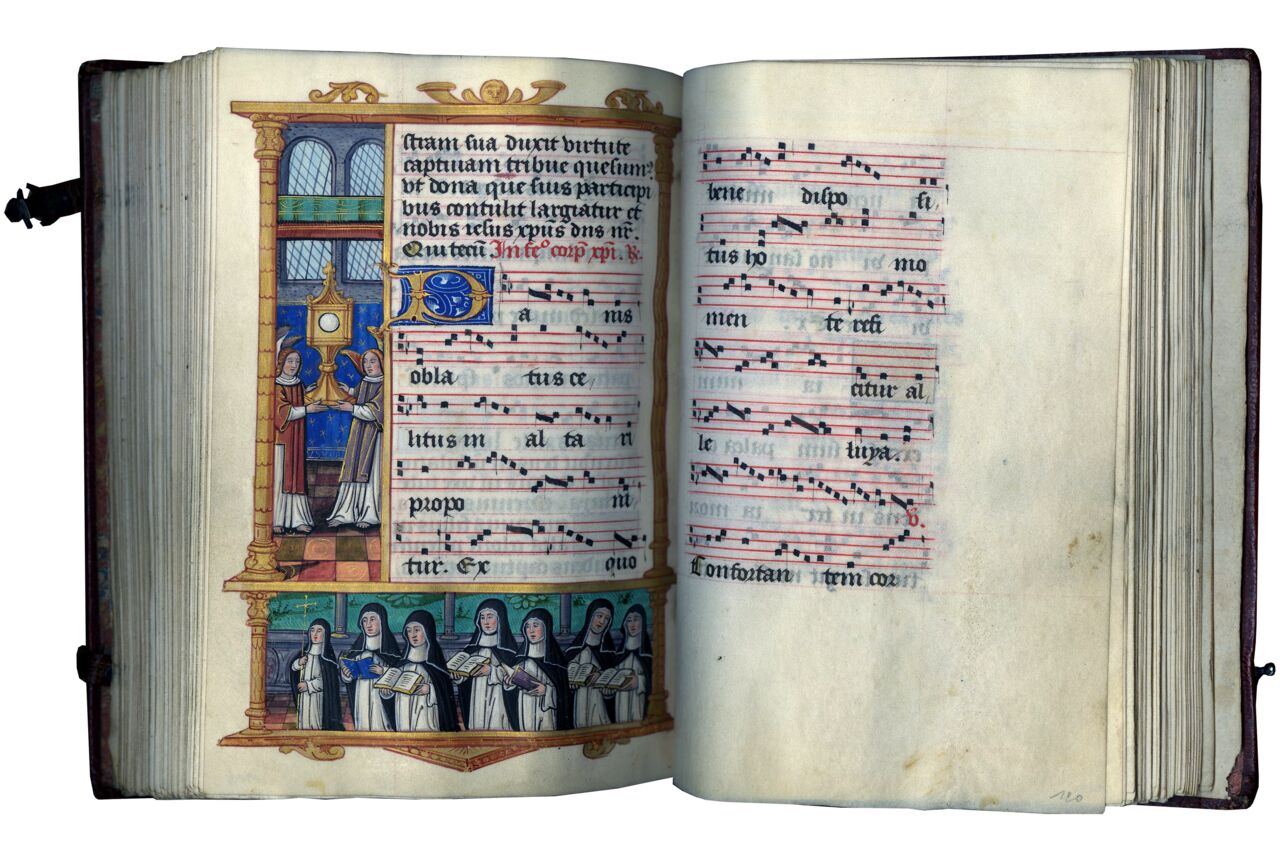 stram sua duxit virtute
captiuam tribue quesum9
vt dona que suis participi
bus contulit largiatur et
nobis iesus xpūs dns nr̄.
Qui tecū. In fe⁰ corp̄ xpī. R.
Pa nis
obla tus ce,
litus in al ta ri
propo ni
tur. Ex quo
bene dispo si
tus ho mo
men te refi
citur al,
le luya.
V.
Confortan tem cor
120